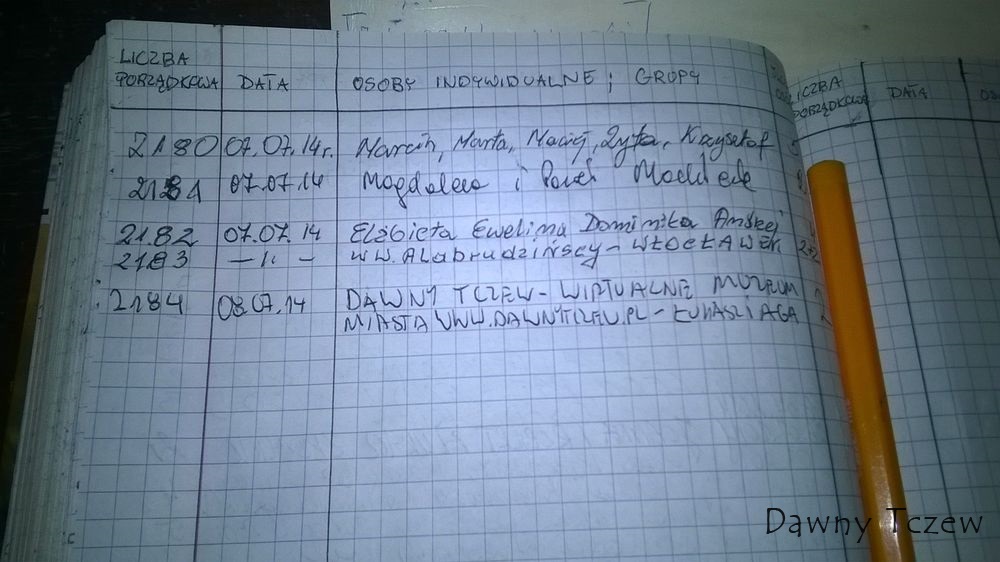 LICZBA
PORZĄDKOWA DATA OSOBY INDYWIDUALNE; GRUPY
2180 07.07.14r. Marcin, Marta, Maciej, Zyta, Krzysztof
2181 07.07.14 Magdalena i Paweł
2182 07.07.14 Elżbieta Ewelina Dominika Andrzej
2183 —''— W.W. Alabrudzińscy - WŁOCŁAWEK
2184 08.07.14 DAWNY TCZEW - WIRTUALNE MUZEUM
MIASTA WWW.DAWNYTCZEW.PL - ŁUKASZ I AGA
LICZBA
PORZĄDKOWA DATA
Dawny Tczew